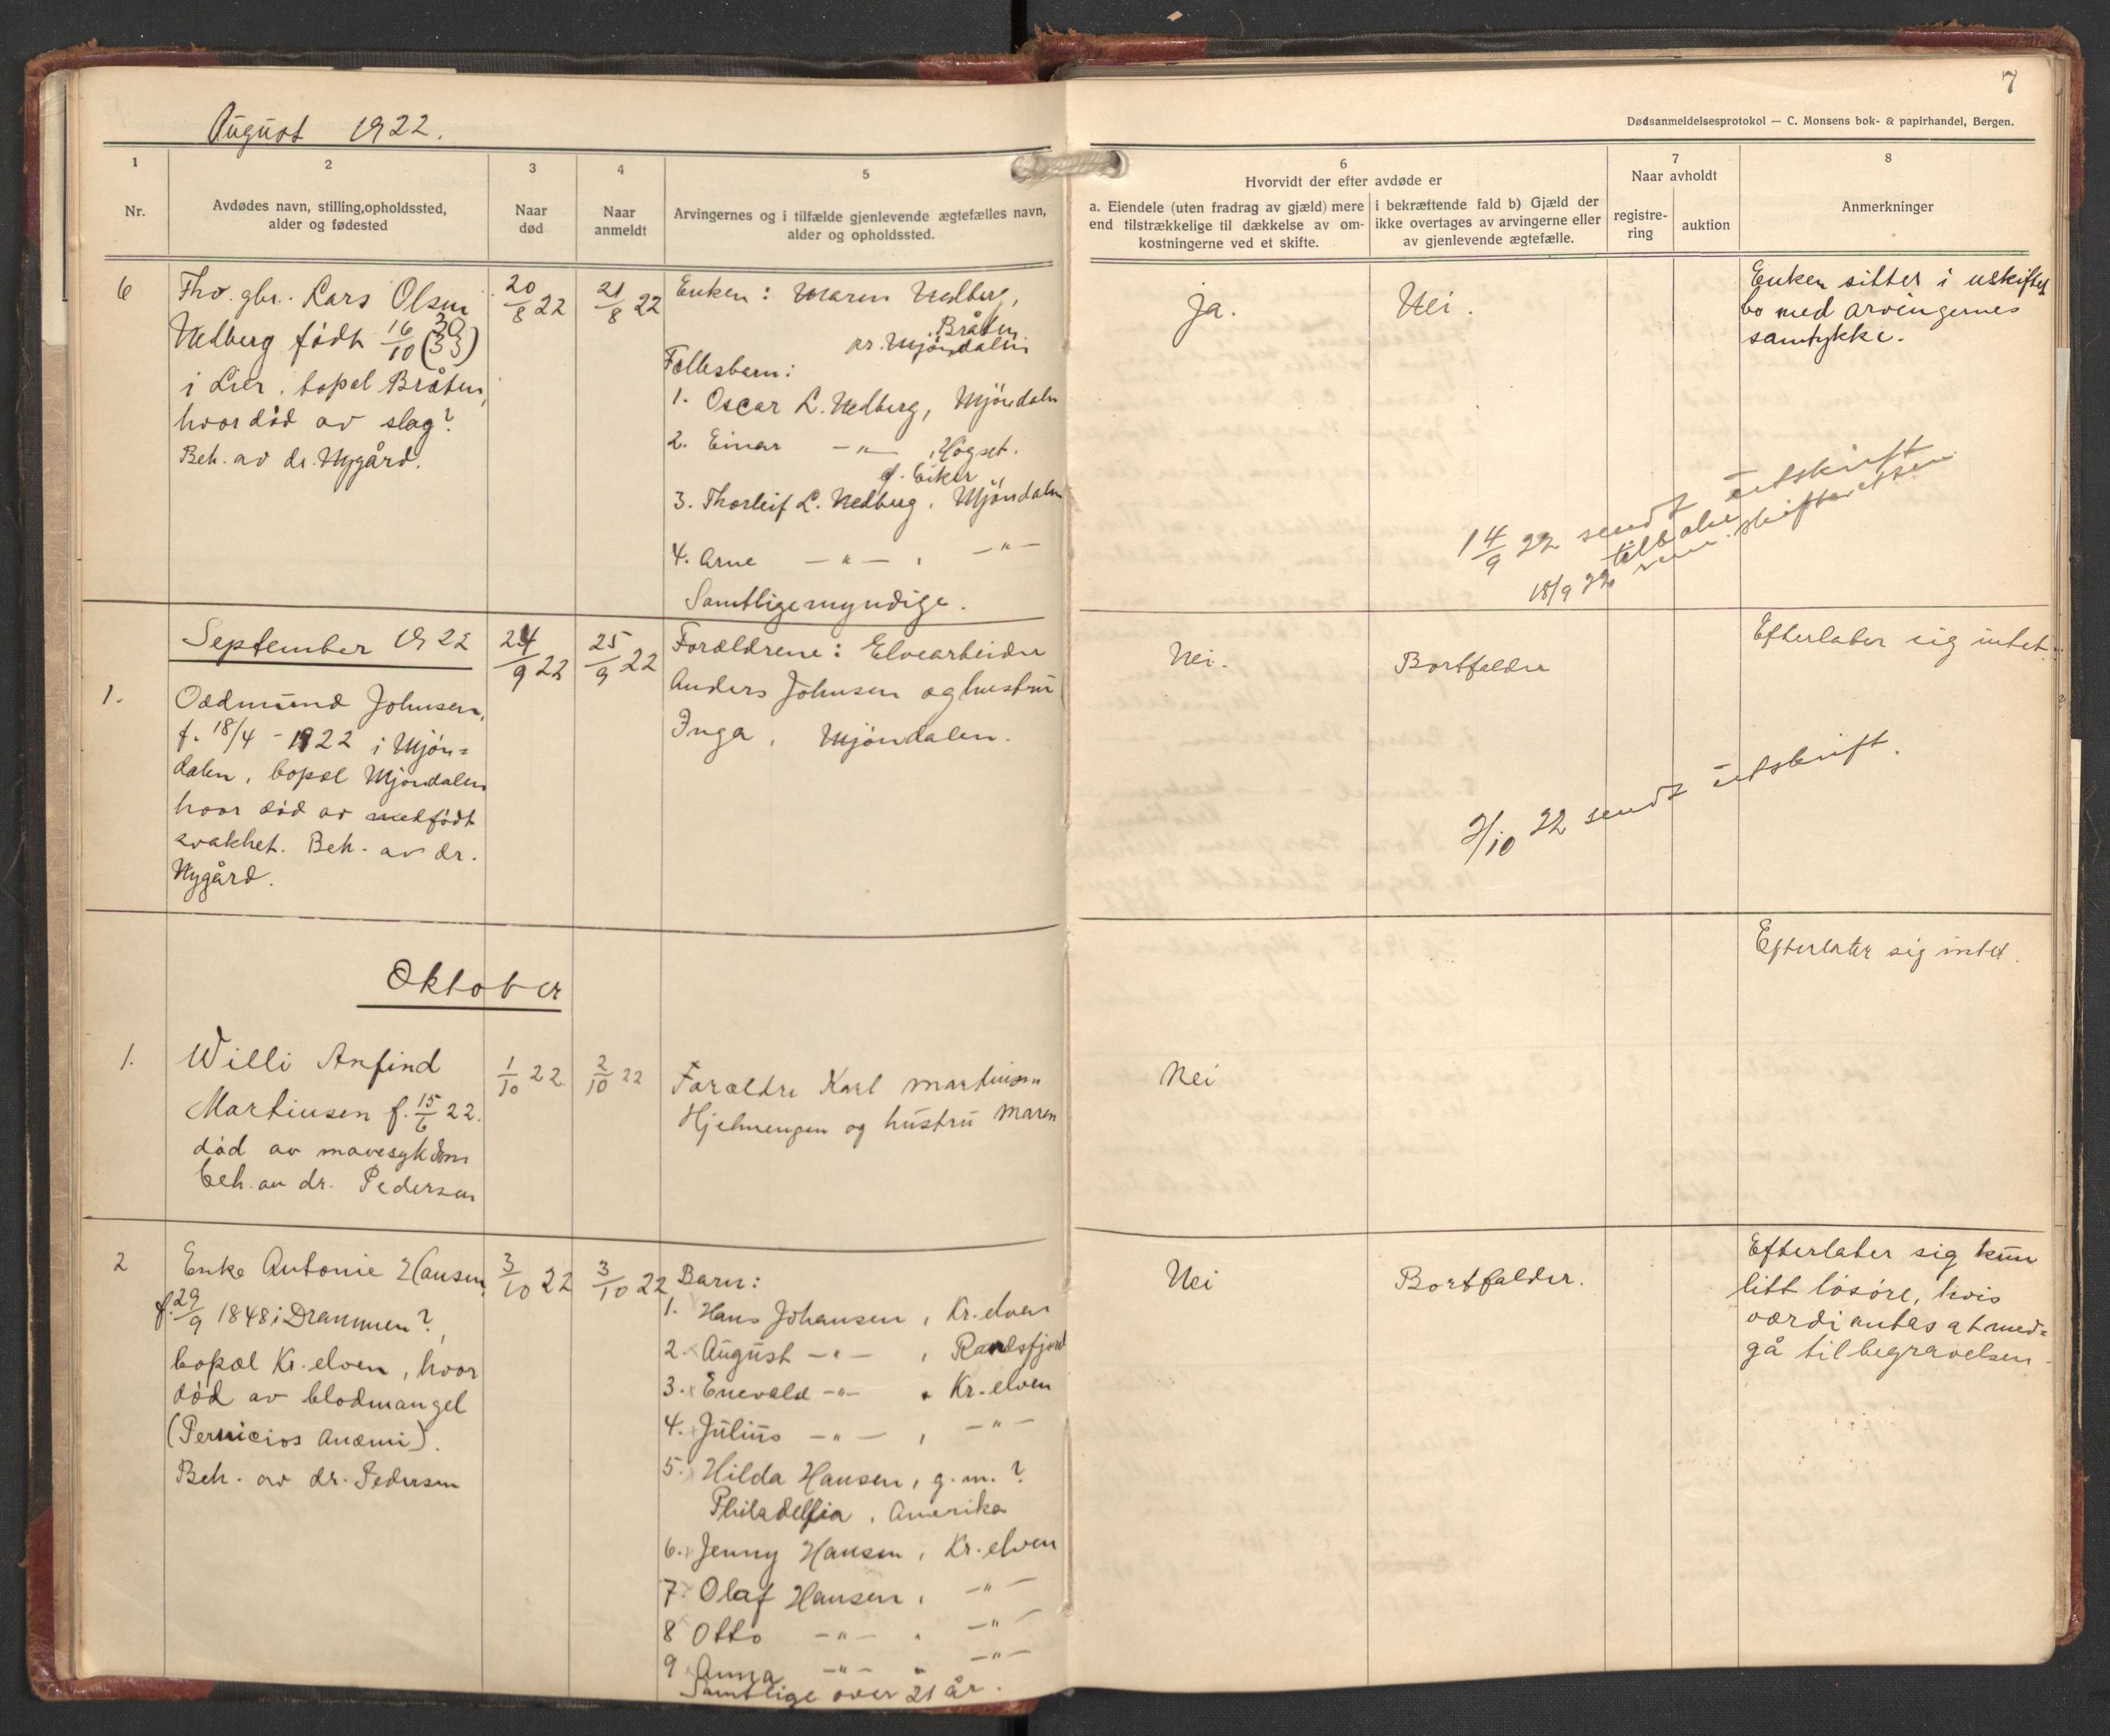 7
Dødsanmeldelsesprotokol — C. Monsens bok- & papirhandel, Bergen.
August 1922.
1
Nr.
2
Avdødes navn, stilling, opholdssted,
alder og fødested
3
Naar
død
4
Naar
anmeldt
5
Arvingernes og i tilfælde gjenlevende ægtefælles navn,
alder og opholdssted.
6
Hvorvidt der efter avdøde er
a. Eiendele (uten fradrag av gjæld) mere
end tilstrækkelige til dækkelse av om-
kostningerne ved et skifte.
i bekræftende fald b) Gjæld der
ikke overtages av arvingerne eller
av gjenlevende ægtefælle.
7
Naar avholdt
registre-
ring
auktion
8
Anmerkninger
6
Fhv. gbr. Lars Olsen
Nedberg født 16/10 (33)
i Lier, bopæl Bråten,
hvor död av slag?
Beh. av dr. Nygård.
20/8 22
21/8 22
Enken: Maren Nedberg,
Bråten
pr. Mjöndalen
Fællesbarn:
1. Oscar L. Nedberg, Mjöndalen
2. Einar —"— , Hogset.
ø. Eiker
3. Thorleif L. Nedberg, Mjöndalen
4. Arne —"— , —"—
Samtlige myndige.
Ja.
Nei.
Enken sitter i uskiftet
bo med arvingernes
samtykke.
14/9 22 sendt utskrift
18/9 22 skifteretten
September 1922
1.
Oddmund Johnsen,
f. 18/4 - 1922 i Mjön=
dalen, bopæl Mjöndalen
hvor död av medfödt
svakhet. Beh. av dr.
Nygård.
24/9 22
25/9 22
Forældrene: Elvearbeider
Anders Johnsen og hustru
Inga, Mjöndalen.
Nei.
Bortfalder
Efterlater sig intet.
2/10 22 sendt utskrift.
Oktober
1.
Willi Anfind
Martiusen f. 15/6 22.
död av mavesykdom
beh. av dr. Pedersen
1/10 22
2/10 22
Forældre Karl Martiusen
Hjelmengen og hustru Maren
Nei
Efterlater sig intet.
2
Enke Antonie Hansen
f. 29/9 1848 i Drammen?,
bopæl Kr. elven, hvor
död av blodmangel
(Pernicios Anæmi).
Beh. av dr. Pedersen
3/10 22
3/10 22
Barn:
1. Hans Johansen, Kr. elven
2. x August —"— , Randsfjord
3. x Enevald —"— , Kr. elven
4. x Julius —"— , —"—
5. x Hilda Hansen, g. m. ?
Philadelfia, Amerika
6. x Jenny Hansen, Kr. elven
7. Olaf Hansen, —"—
8 Otto —"— , —"—
9 x Anna —"— , —"—
Samtlige over 21 år.
Nei
Bortfalder.
Efterlater sig kun
litt lösöre, hvis
værdi antas at med=
gå til begravelsen.